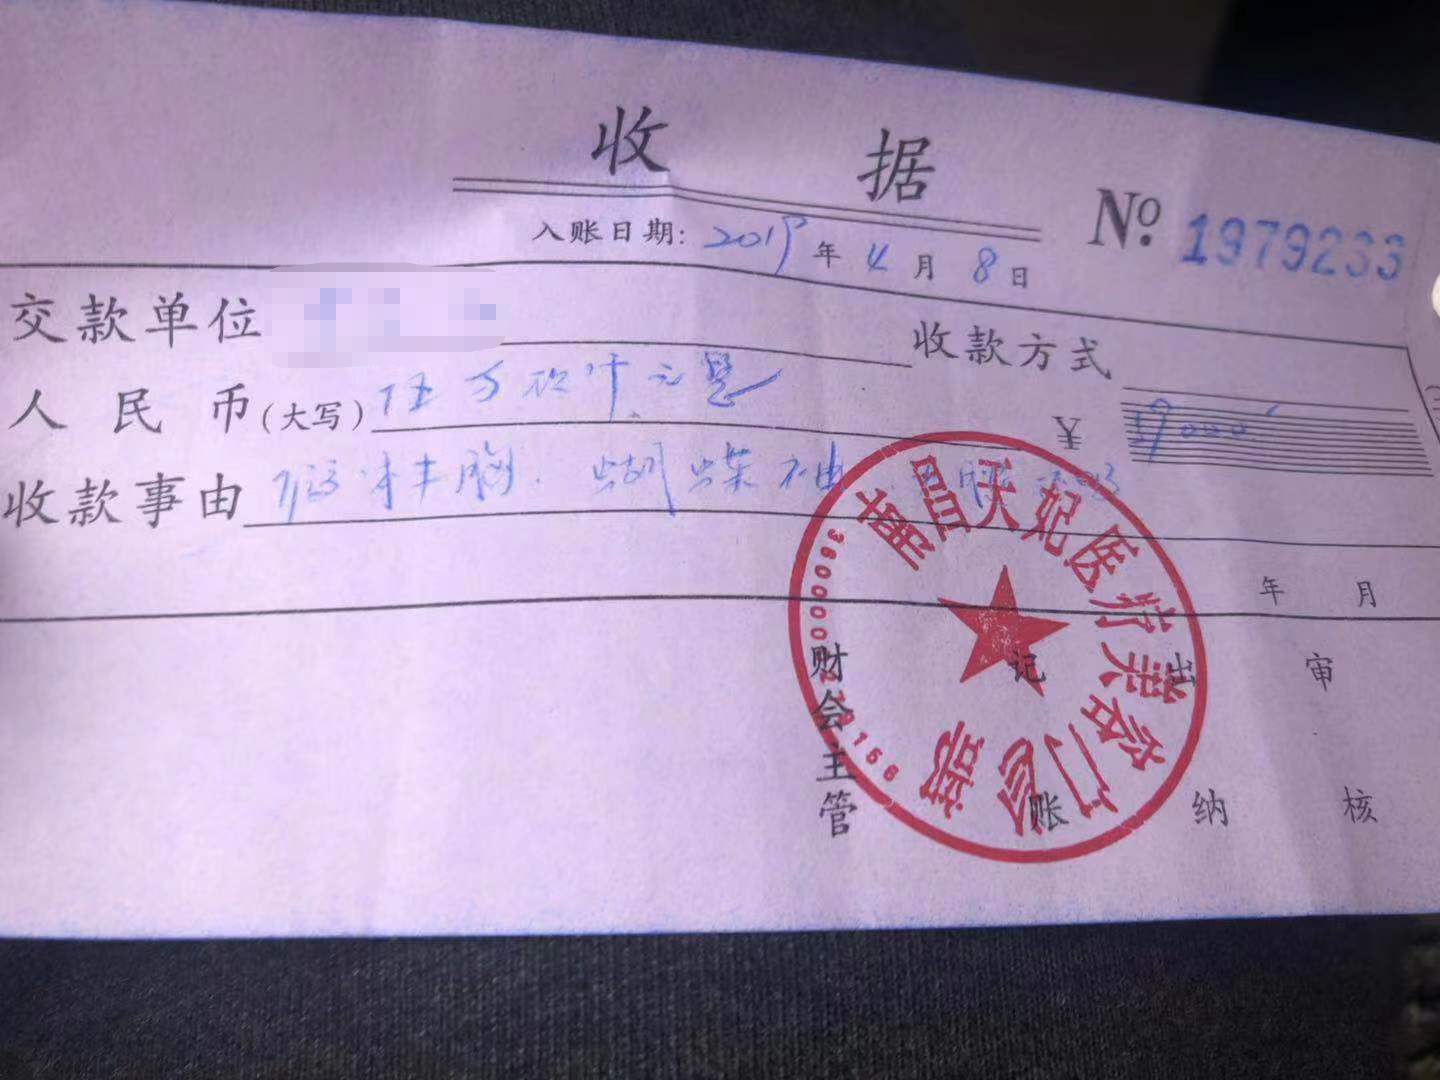 收 据
No. 1979233
入账日期: 2019年 4月 8日
交款单位
收款方式
人民币(大写) 伍万玖仟元整
¥ 59000
收款事由 假体丰胸. 蝴蝶袖
南昌天妃医疗美容门诊部
年 月
财会主管
记账
出纳
审核